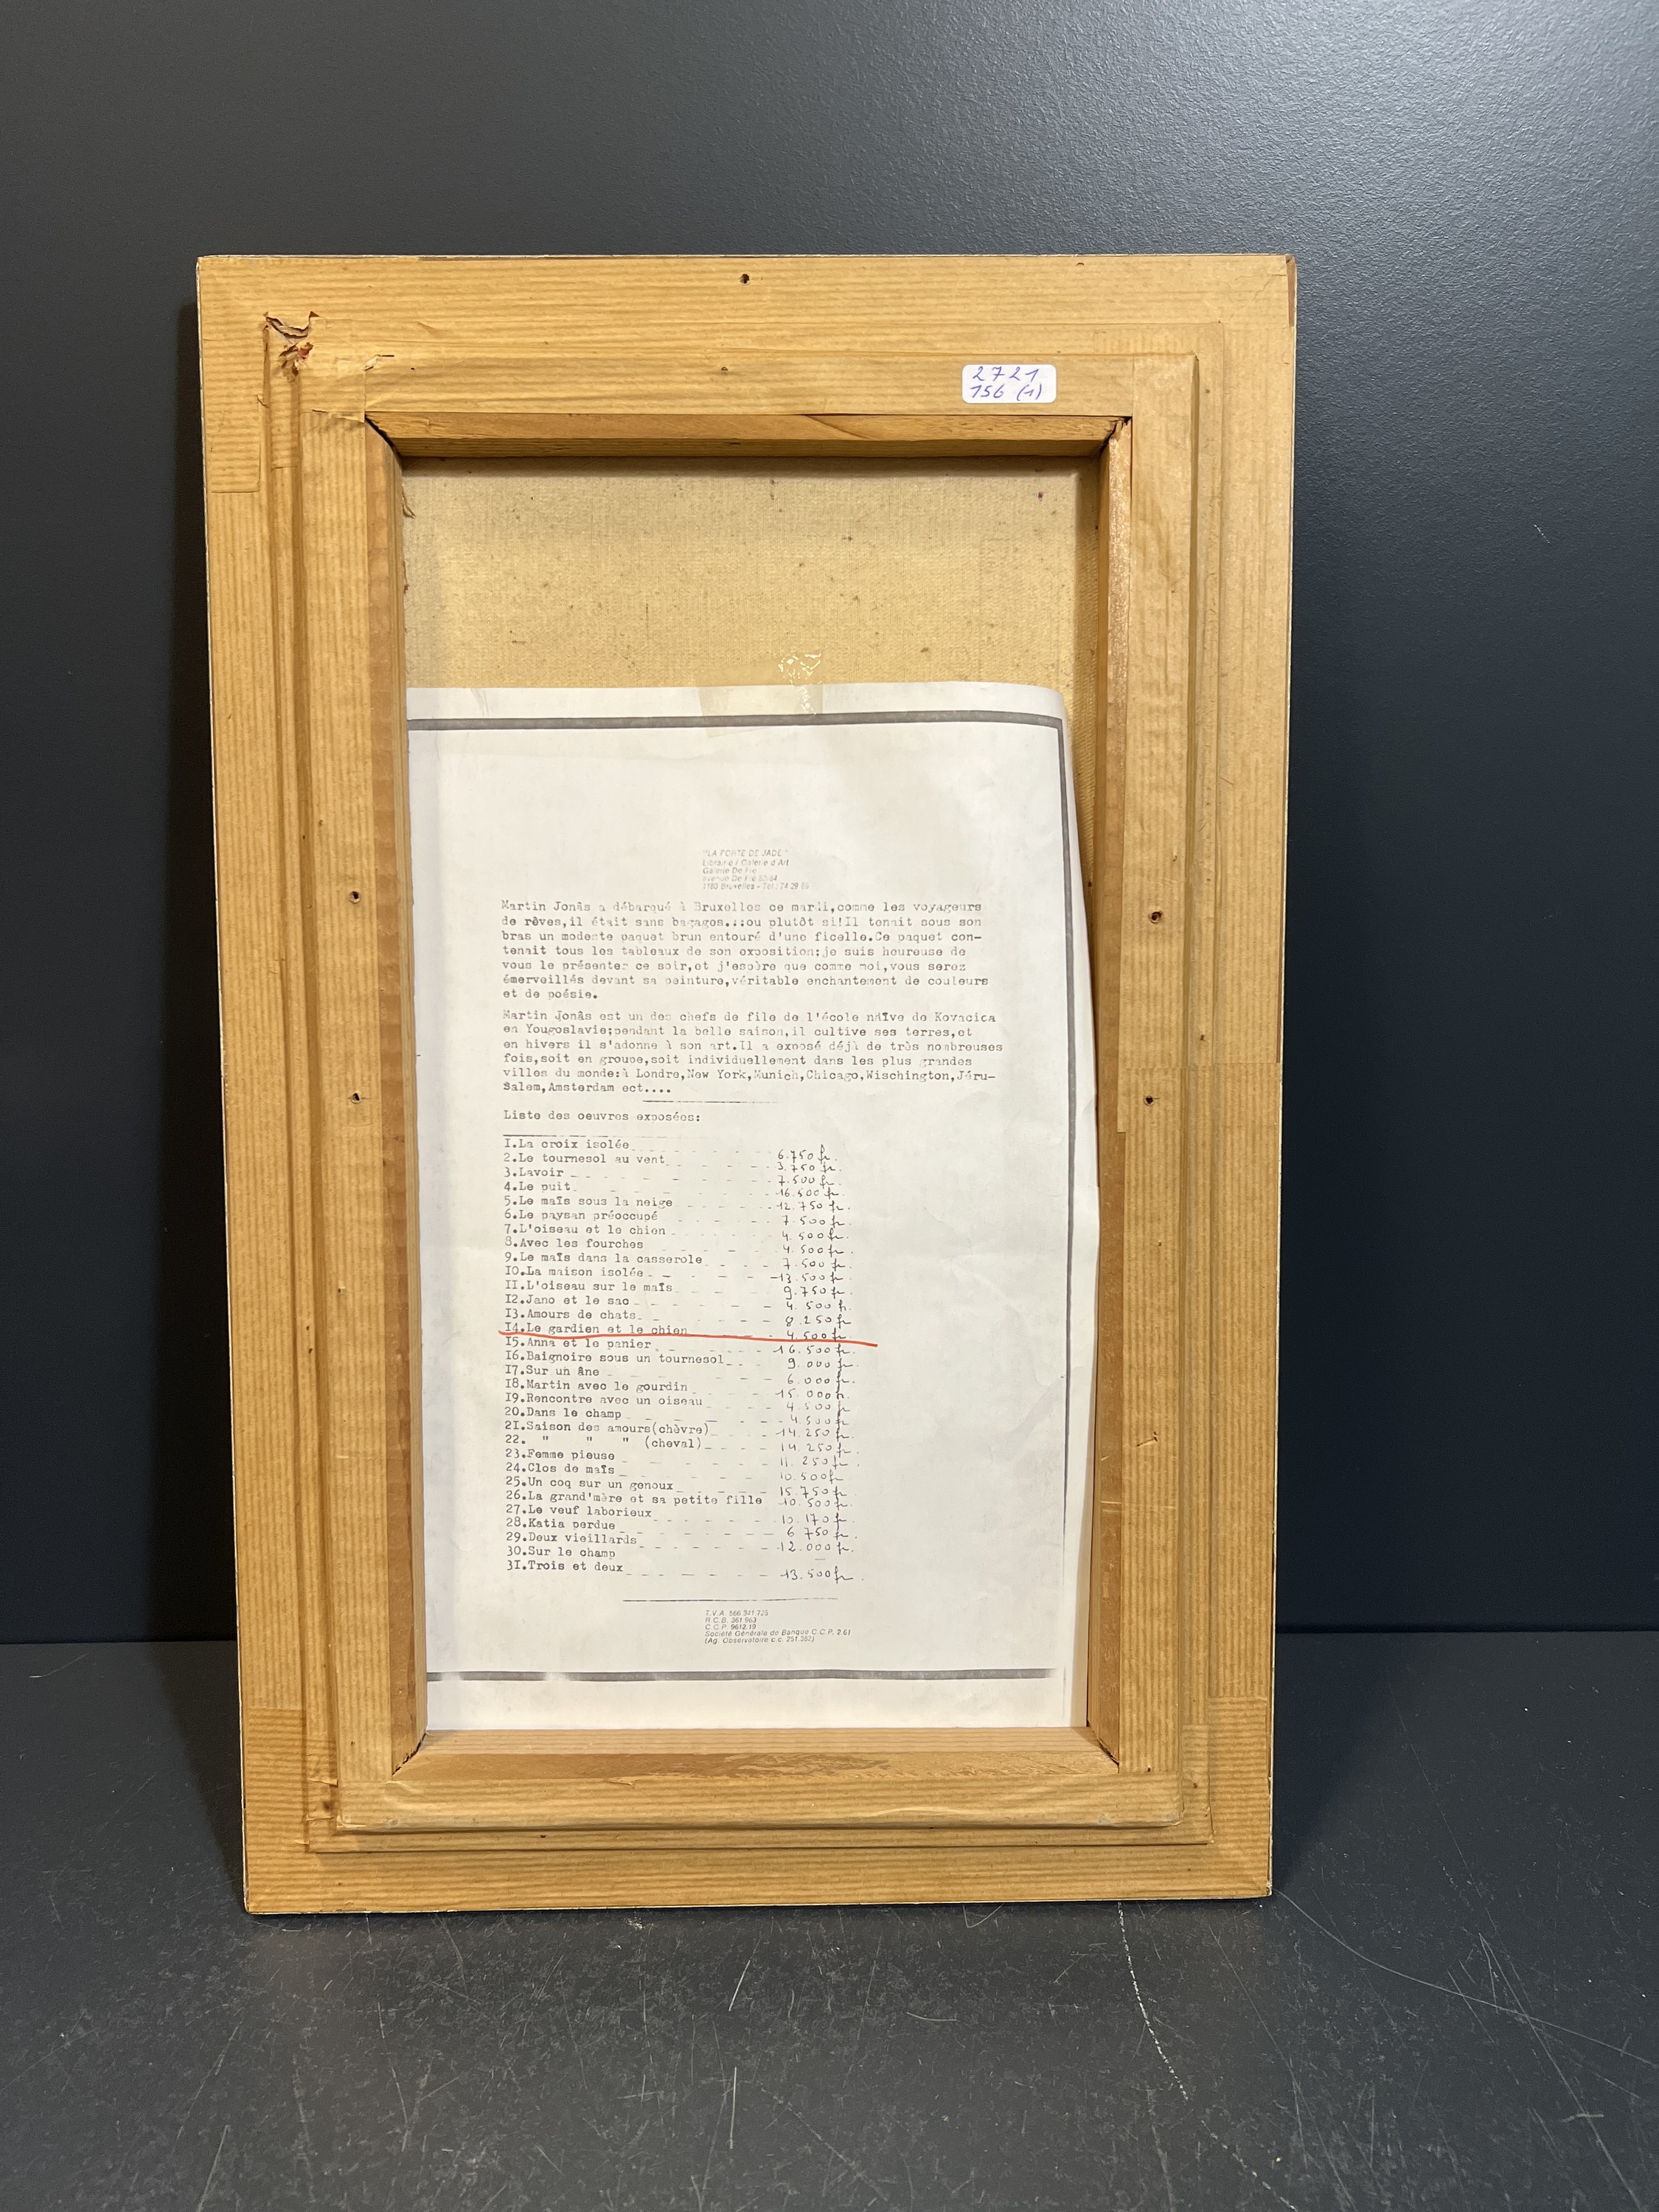 2721
156 (1)
"LA PORTE DE JADE"
Librairie / Galerie d'Art
Galerie De Fré
avenue De Fré 82/84
1180 Bruxelles - Tel.: 74 29 86
Martin Jonâs a débarqué à Bruxelles ce mardi,comme les voyageurs
de rêves,il était sans bagages.::ou plutôt si!Il tenait sous son
bras un modeste paquet brun entouré d'une ficelle.Ce paquet con-
tenait tous les tableaux de son exposition;je suis heureuse de
vous le présenter ce soir,et j'espère que comme moi,vous serez
émerveillés devant sa peinture,véritable enchantement de couleurs
et de poésie.
Martin Jonâs est un des chefs de file de l'école näïve de Kovacica
en Yougoslavie;pendant la belle saison,il cultive ses terres,et
en hivers il s'adonne à son art.Il a exposé déjà de très nombreuses
fois,soit en groupe,soit individuellement dans les plus grandes
villes du monde:à Londre,New York,Munich,Chicago,Wischington,Jéru-
Salem,Amsterdam ect....
Liste des oeuvres exposées:
I.La croix isolée 6.750 fr.
2.Le tournesol au vent 3.750 fr.
3.Lavoir 7.500 fr.
4.Le puit 16.500 fr.
5.Le maïs sous la neige 12.750 fr.
6.Le paysan préoccupé 7.500 fr.
7.L'oiseau et le chien 4.500 fr.
8.Avec les fourches 4.500 fr.
9.Le maïs dans la casserole 7.500 fr.
IO.La maison isolée 13.500 fr.
II.L'oiseau sur le maïs 9.750 fr.
I2.Jano et le sac 4.500 fr.
I3.Amours de chats 8.250 fr.
I4.Le gardien et le chien 4.500 fr.
I5.Anna et le panier 16.500 fr.
I6.Baignoire sous un tournesol 9.000 fr.
I7.Sur un âne 6.000 fr.
I8.Martin avec le gourdin 15.000 fr.
I9.Rencontre avec un oiseau 4.500 fr.
20.Dans le champ 4.500 fr.
2I.Saison des amours(chèvre) 14.250 fr.
22. " " " (cheval) 14.250 fr.
23.Femme pieuse 11.250 fr.
24.Clos de maïs 10.500 fr.
25.Un coq sur un genoux 15.750 fr.
26.La grand'mère et sa petite fille 10.500 fr.
27.Le veuf laborieux 10.170 fr.
28.Katia perdue 6.750 fr.
29.Deux vieillards 12.000 fr.
30.Sur le champ
3I.Trois et deux 13.500 fr.
T.V.A. 566.341.725
R.C.B. 361 963
C.C.P. 9612.19
Société Générale de Banque C.C.P. 2.61
(Ag. Observatoire c.c. 251.382)